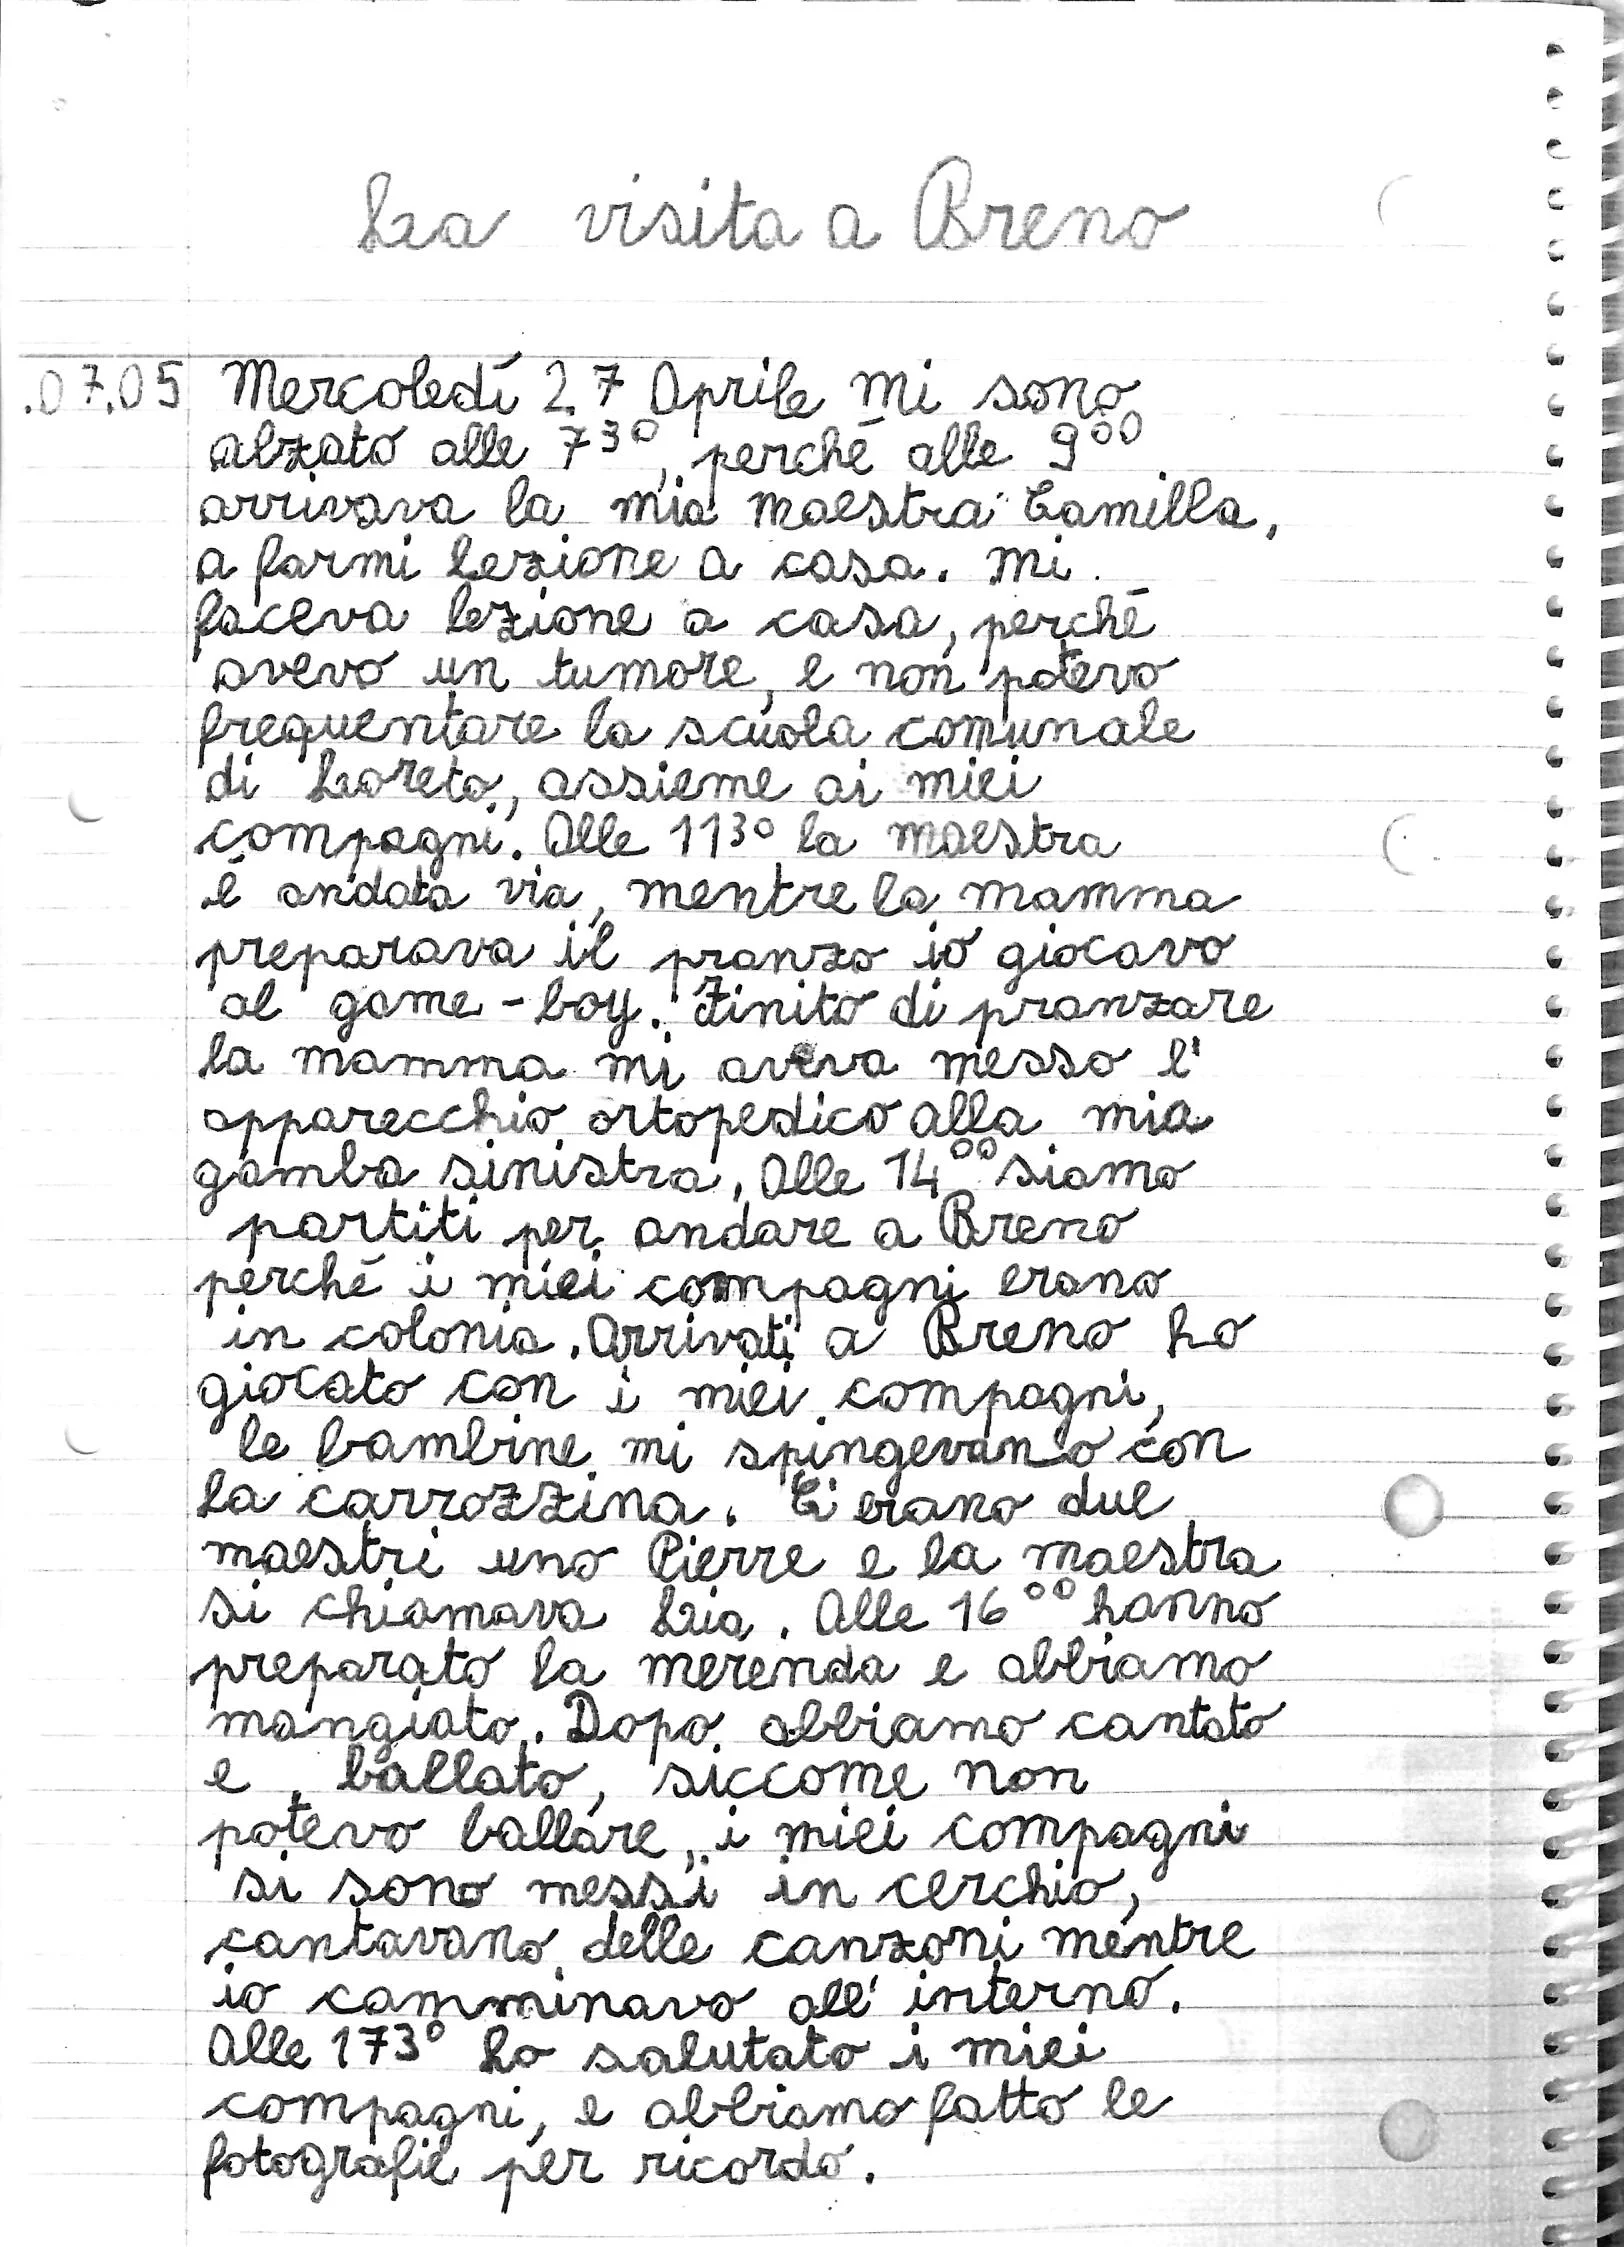 La visita a Breno
.07.05 Mercoledì 27 Aprile mi sono
alzato alle 7³⁰, perché alle 9⁰⁰
arrivava la mia maestra Camilla,
a farmi lezione a casa. Mi
faceva lezione a casa, perché
avevo un tumore, e non potevo
frequentare la scuola comunale
di Loreto, assieme ai miei
compagni. Alle 11³⁰ la maestra
è andata via, mentre la mamma
preparava il pranzo io giocavo
al game-boy. Finito di pranzare
la mamma mi aveva messo l'
apparecchio ortopedico alla mia
gamba sinistra. Alle 14⁰⁰ siamo
partiti per andare a Breno
perché i miei compagni erano
in colonia. Arrivati a Breno ho
giocato con i miei compagni,
le bambine mi spingevano con
la carrozzina. C'erano due
maestri uno Pierre e la maestra
si chiamava Lia. Alle 16⁰⁰ hanno
preparato la merenda e abbiamo
mangiato. Dopo abbiamo cantato
e ballato, siccome non
potevo ballare, i miei compagni
si sono messi in cerchio,
cantavano delle canzoni mentre
io camminavo all'interno.
Alle 17³⁰ ho salutato i miei
compagni, e abbiamo fatto le
fotografie per ricordo.